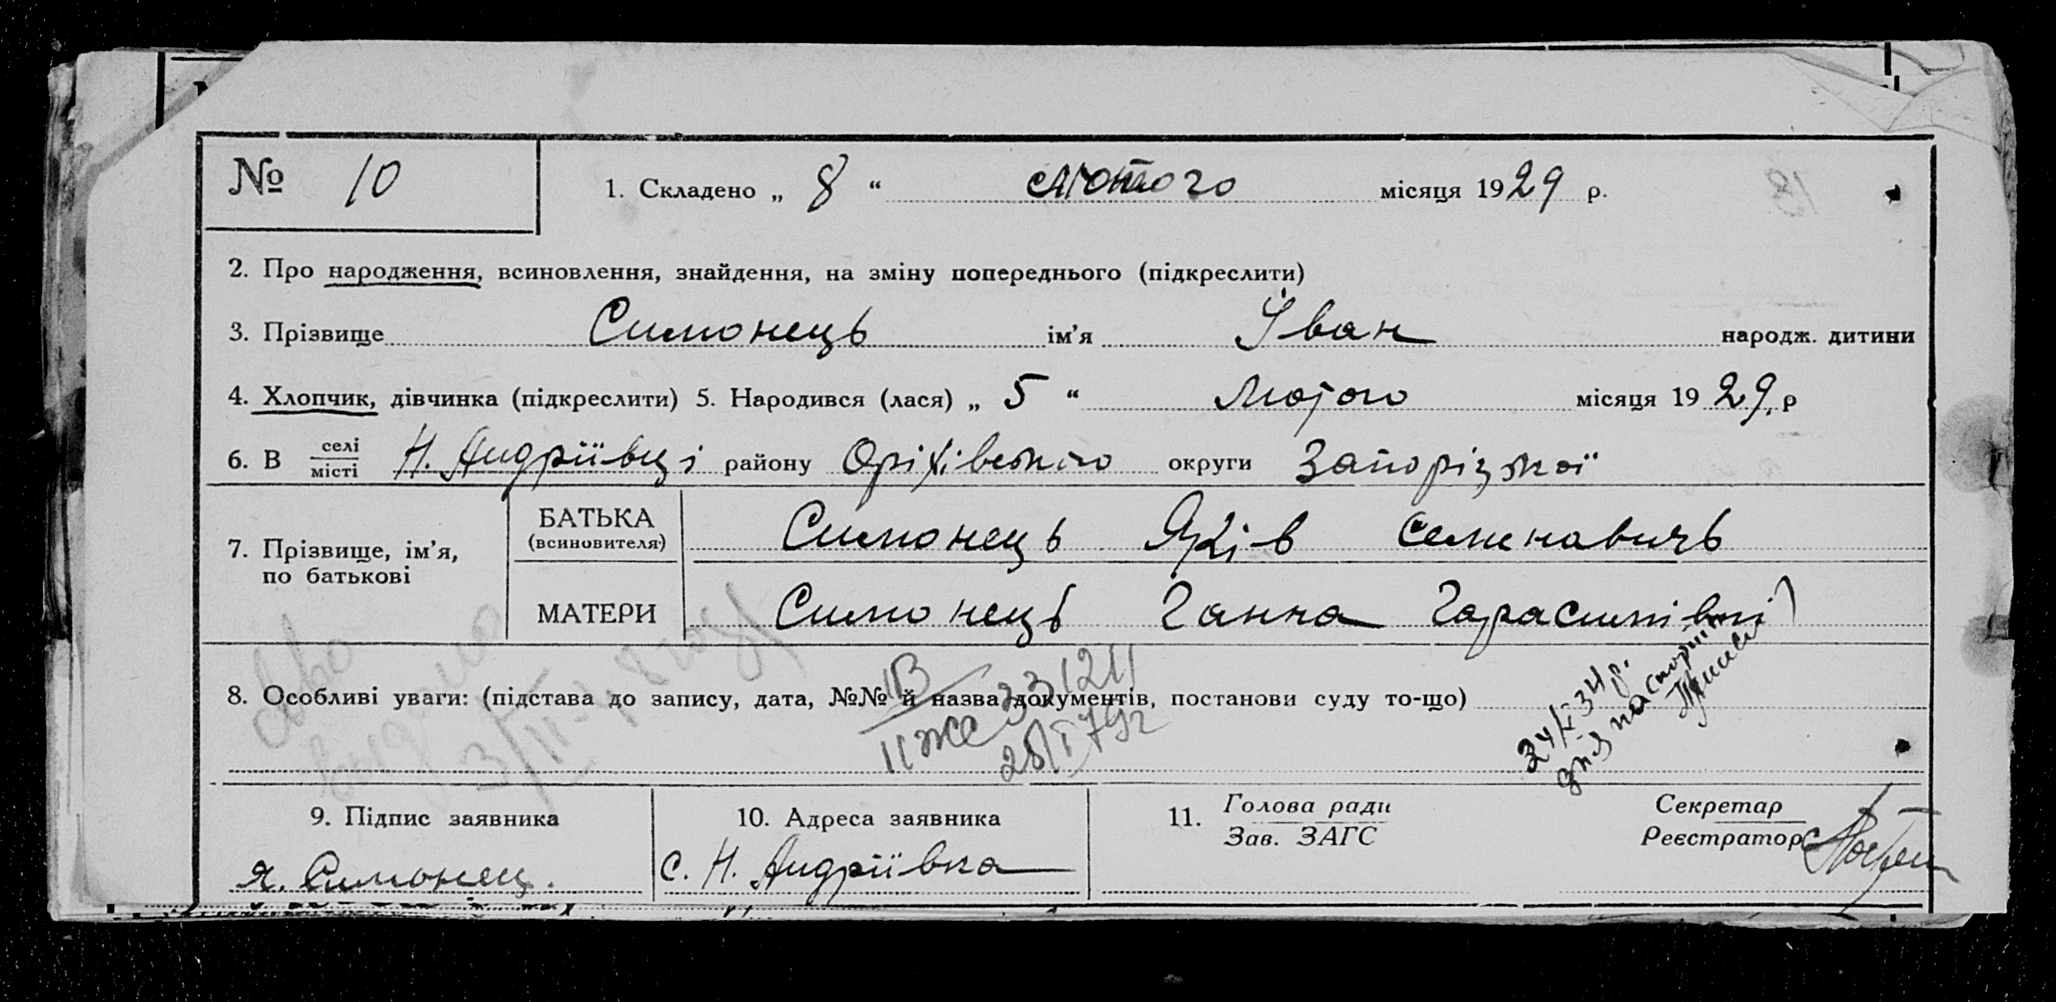 № 10 1. Складено „ 8 “ лютого місяця 1929 р.
2. Про народження, всиновлення, знайдення, на зміну попереднього (підкреслити)
3. Прізвище Симонець ім’я Іван народж. дитини
4. Хлопчик, дівчинка (підкреслити) 5. Народився (лася) „ 5 “ Лютого місяця 1929 р
6. В селі/місті Н. Андріївці району Оріхівського округи Запорізької
7. Прізвище, ім’я, по батькові
БАТЬКА (всиновителя) Симонець Яків Семенавичь
МАТЕРИ Симонець Ганна Гарасимівні
8. Особливі уваги: (підстава до запису, дата, №№ й назва документів, постанови суду то-що)
ІІ ЖС 331211
28/І 79г
24/Х 34 р.
для паспорт
9. Підпис заявника
Я. Симонец.
10. Адреса заявника
с. Н. Андріївка
11. Голова ради
Зав. ЗАГС
Секретар
Реєстратор